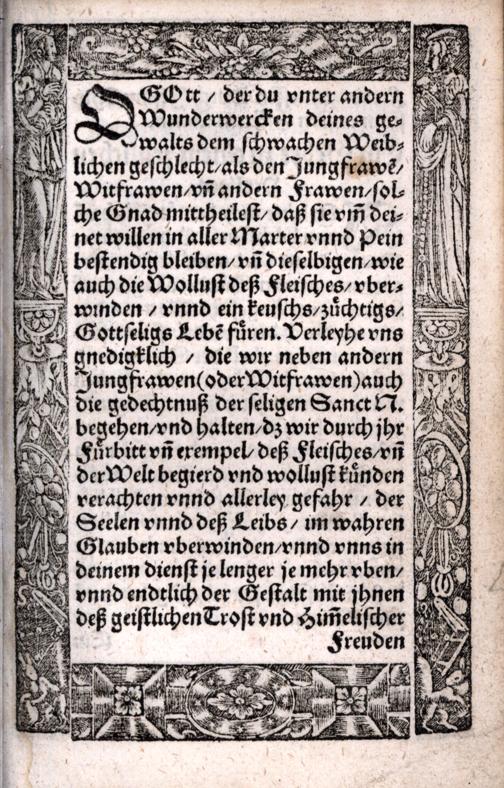 O GOtt / der du vnter andern
Wunderwercken deines ge⸗
walts dem schwachen Weib⸗
lichen geschlecht/als den Jungfrawẽ/
Witfrawen/vñ andern Frawen/sol⸗
che Gnad mittheilest/ daß sie vm̃ dei⸗
net willen in aller Marter vnnd Pein
bestendig bleiben/ vñ dieselbigen/wie
auch die Wollust deß Fleisches/ vber⸗
winden / vnnd ein keuschs/züchtigs/
Gottseligs Lebẽ füren. Verleyhe vns
gnedigklich / die wir neben andern
Jungfrawen(oder Witfrawen)auch
die gedechtnuß der seligen Sanct N.
begehen/vnd halten/dz wir durch jhr
Fürbitt vñ exempel/ deß Fleisches/vñ
der Welt begierd vnd wollust künden
verachten vnnd allerley gefahr / der
Seelen vnnd deß Leibs/ im wahren
Glauben vberwinden/vnnd vnns in
deinem dienst je lenger je mehr vben/
vnnd endtlich der Gestalt mit jhnen
deß geistlichen Trost vnd Him̃elischer
Freuden